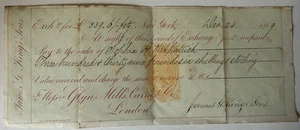 James G. King's Sons
Exch: for £ 339.6/- stg. New York Dec 24 1879
At sight of this first of Exchange Second unpaid
Pay to the order of Sophia H. Kirkpatrick
Three hundred & thirty nine pounds six shillings sterling
Value received and charge the same to account of
To Messrs Glyn, Mills, Currie & Co.
London James G. King's Sons